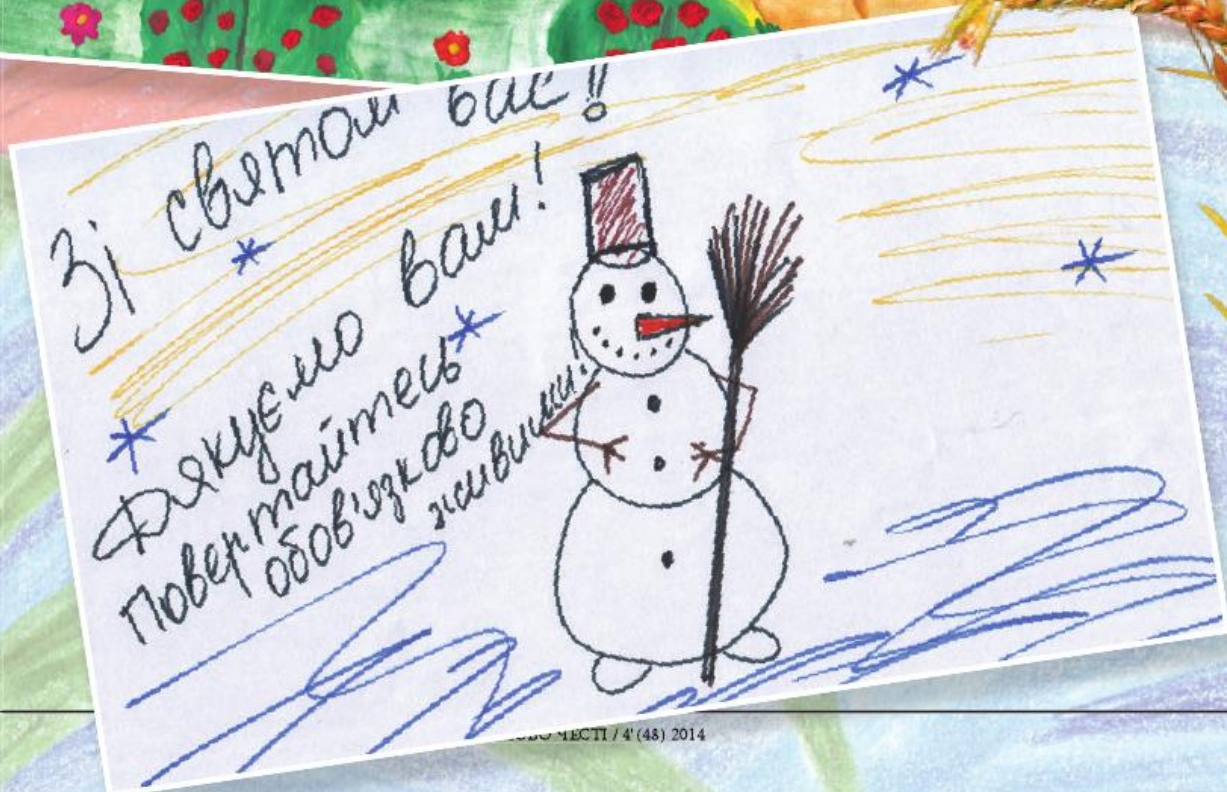 Зі святом вас!!
Дякуємо вам!
Повертайтесь
обов'язково
живими!
ЧЕСТІ / 4'(48) 2014